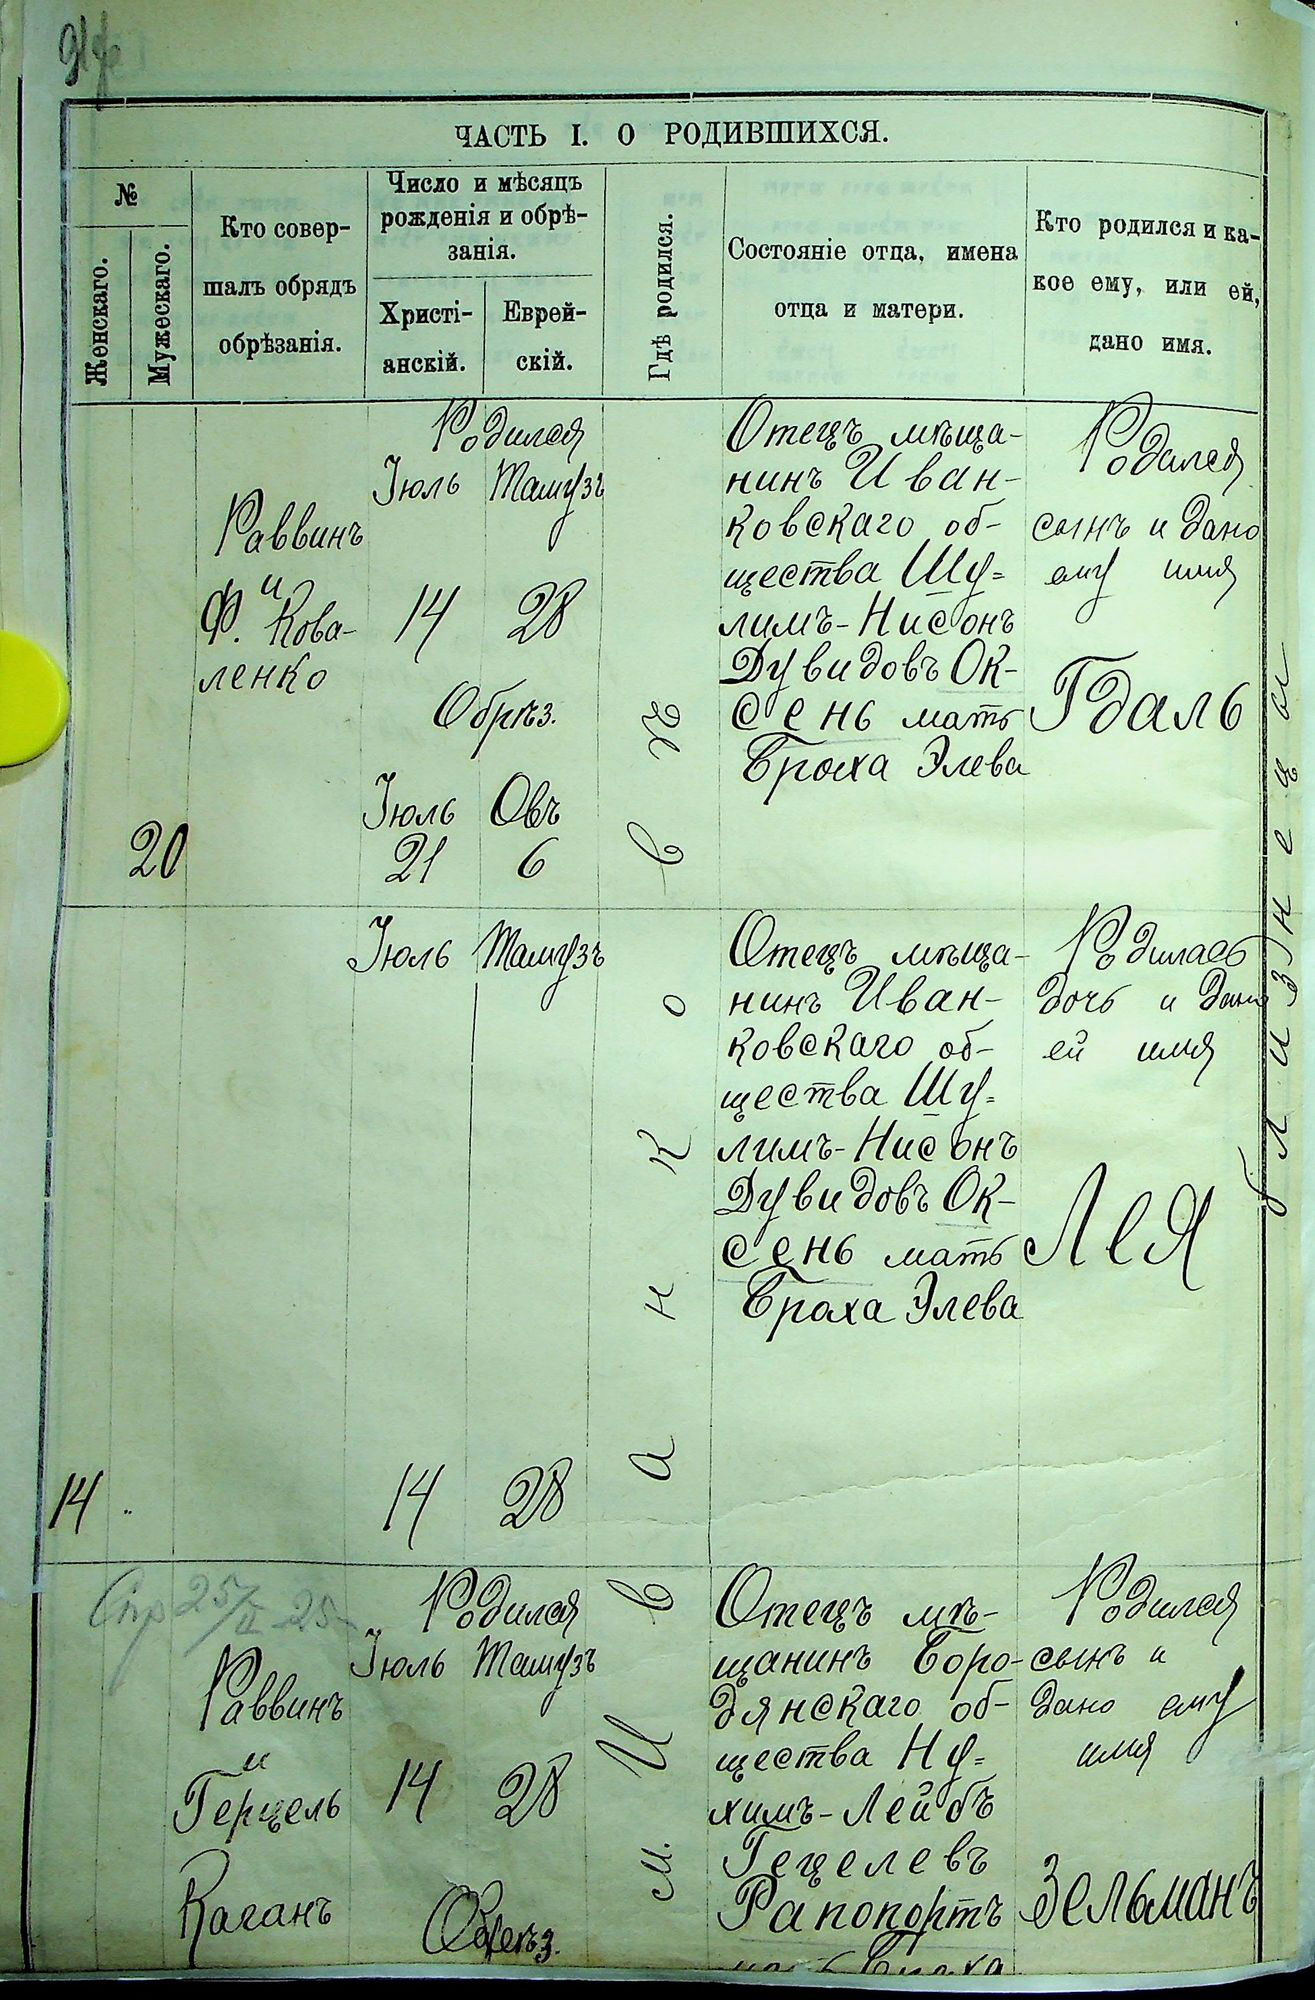 ЧАСТЬ I. О РОДИВШИХСЯ.
№
Женскаго.
Мужескаго.
Кто совер-
шалъ обрядъ
обрѣзанія.
Число и мѣсяцъ
рожденія и обрѣ-
занія.
Христі-
анскій.
Еврей-
скій.
Гдѣ родился.
Состояніе отца, имена
отца и матери.
Кто родился и ка-
кое ему, или ей,
дано имя.
20
Раввинъ
и
Ф. Кова-
ленко
Родился
Іюль Тамузъ
14 28
Обрѣз.
Іюль Овъ
21 6
Отецъ мѣща-
нинъ Иван-
ковскаго об-
щества Шу=
лимъ-Нисонъ
Дувидовъ Ок-
сень мать
Броха Элева
Родился
сынъ и дано
ему имя
Гдаль
близнецы
14
Іюль Тамузъ
14 28
Отецъ мѣща-
нинъ Иван-
ковскаго об-
щества Шу=
лимъ-Нисонъ
Дувидовъ Ок-
сень мать
Броха Элева
Родилась
дочь и дано
ей имя
Лея
м. Иванковѣ
Спр 25/II-25
Раввинъ
и
Герцель
Каганъ
Родился
Іюль Тамузъ
14 28
Обрѣз.
Отецъ мѣ-
щанинъ Боро-
дянскаго об-
щества Ну=
химъ-Лейбъ
Гецелевъ
Рапопортъ
Родился
сынъ и
дано ему
имя
Зельманъ